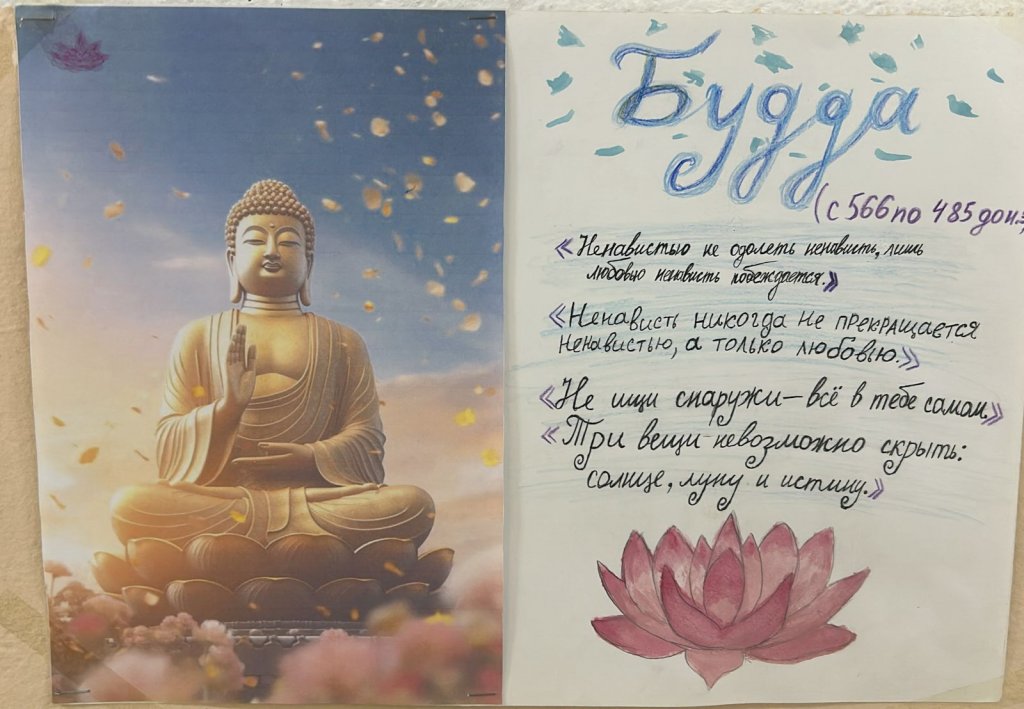 Будда
(с 566 по 485 до н.э
«Ненавистью не одолеть ненависть, лишь
любовью ненависть побеждается.»
«Ненависть никогда не прекращается
ненавистью, а только любовью.»
«Не ищи снаружи – всё в тебе самом.»
«Три вещи невозможно скрыть:
солнце, луну и истину.»